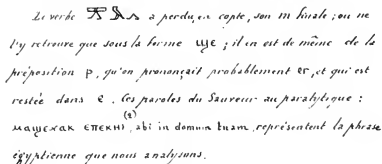 Le verbe 𓈝𓅓𓂻 a perdu, en copte, son m finale; on ne
l'y retrouve que sous la forme ϣⲉ; il en est de même de la
préposition ⲣ, qu'on prononçait probablement er, et qui est
restée dans ⲉ. Ces paroles du Sauveur au paralytique:
ⲙⲁϣⲉⲛⲁⲕ ⲉⲡⲉⲕⲏⲓ (2), abi in domum tuam, représentent la phrase
égyptienne que nous analysons.